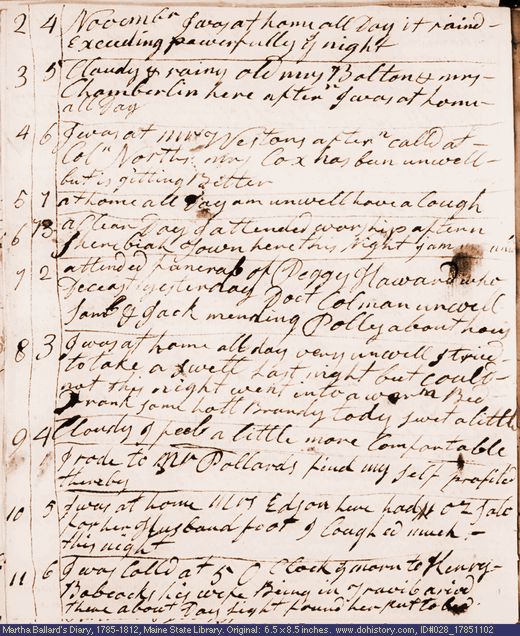 2 4 Novembr I was at home all Day it raind
Exceeding powerfully ys night
3 5 Cloudy & rainy old mrs Bolton & mrs
Chamberlin here aftern I was at home
all Day
4 6 I was at mr Westons aftern calld at
Coln Norths mrs Cox has ben unwell
but is gitting Better
5 7 at home all Day am unwell have a Cough
6 a Clear Day I attended worship aftern
Sherebiah Town here this Night I am
7 2 attended funeral of Peggy Howard who
Deceast yesterday Doct Colman unwell
Saml & Jack mending Polly about hous
8 3 I was at home all day very unwell strivd
to take a swett last night but Could
not this night went into a warm Bed
Drank some hott Brandy tody swet a little
9 4 Cloudy I feel a little more Comfortable
I rode to Mr Pollards find my self profited
thereby
10 5 I was at home Mrs Edson here had 11 oz Salv
for her Husband foot I Coughed much
this night
11 6 I was Calld at 5 O Clock ys morn to Henry
Babcocks his wife Being in Travil arivd
there about Day light found her put to bed
Martha Ballard's Diary, 1785-1812, Maine State Library. Original: 6.5 x 8.5 inches. www.DoHistory.com, ID#028_17851102